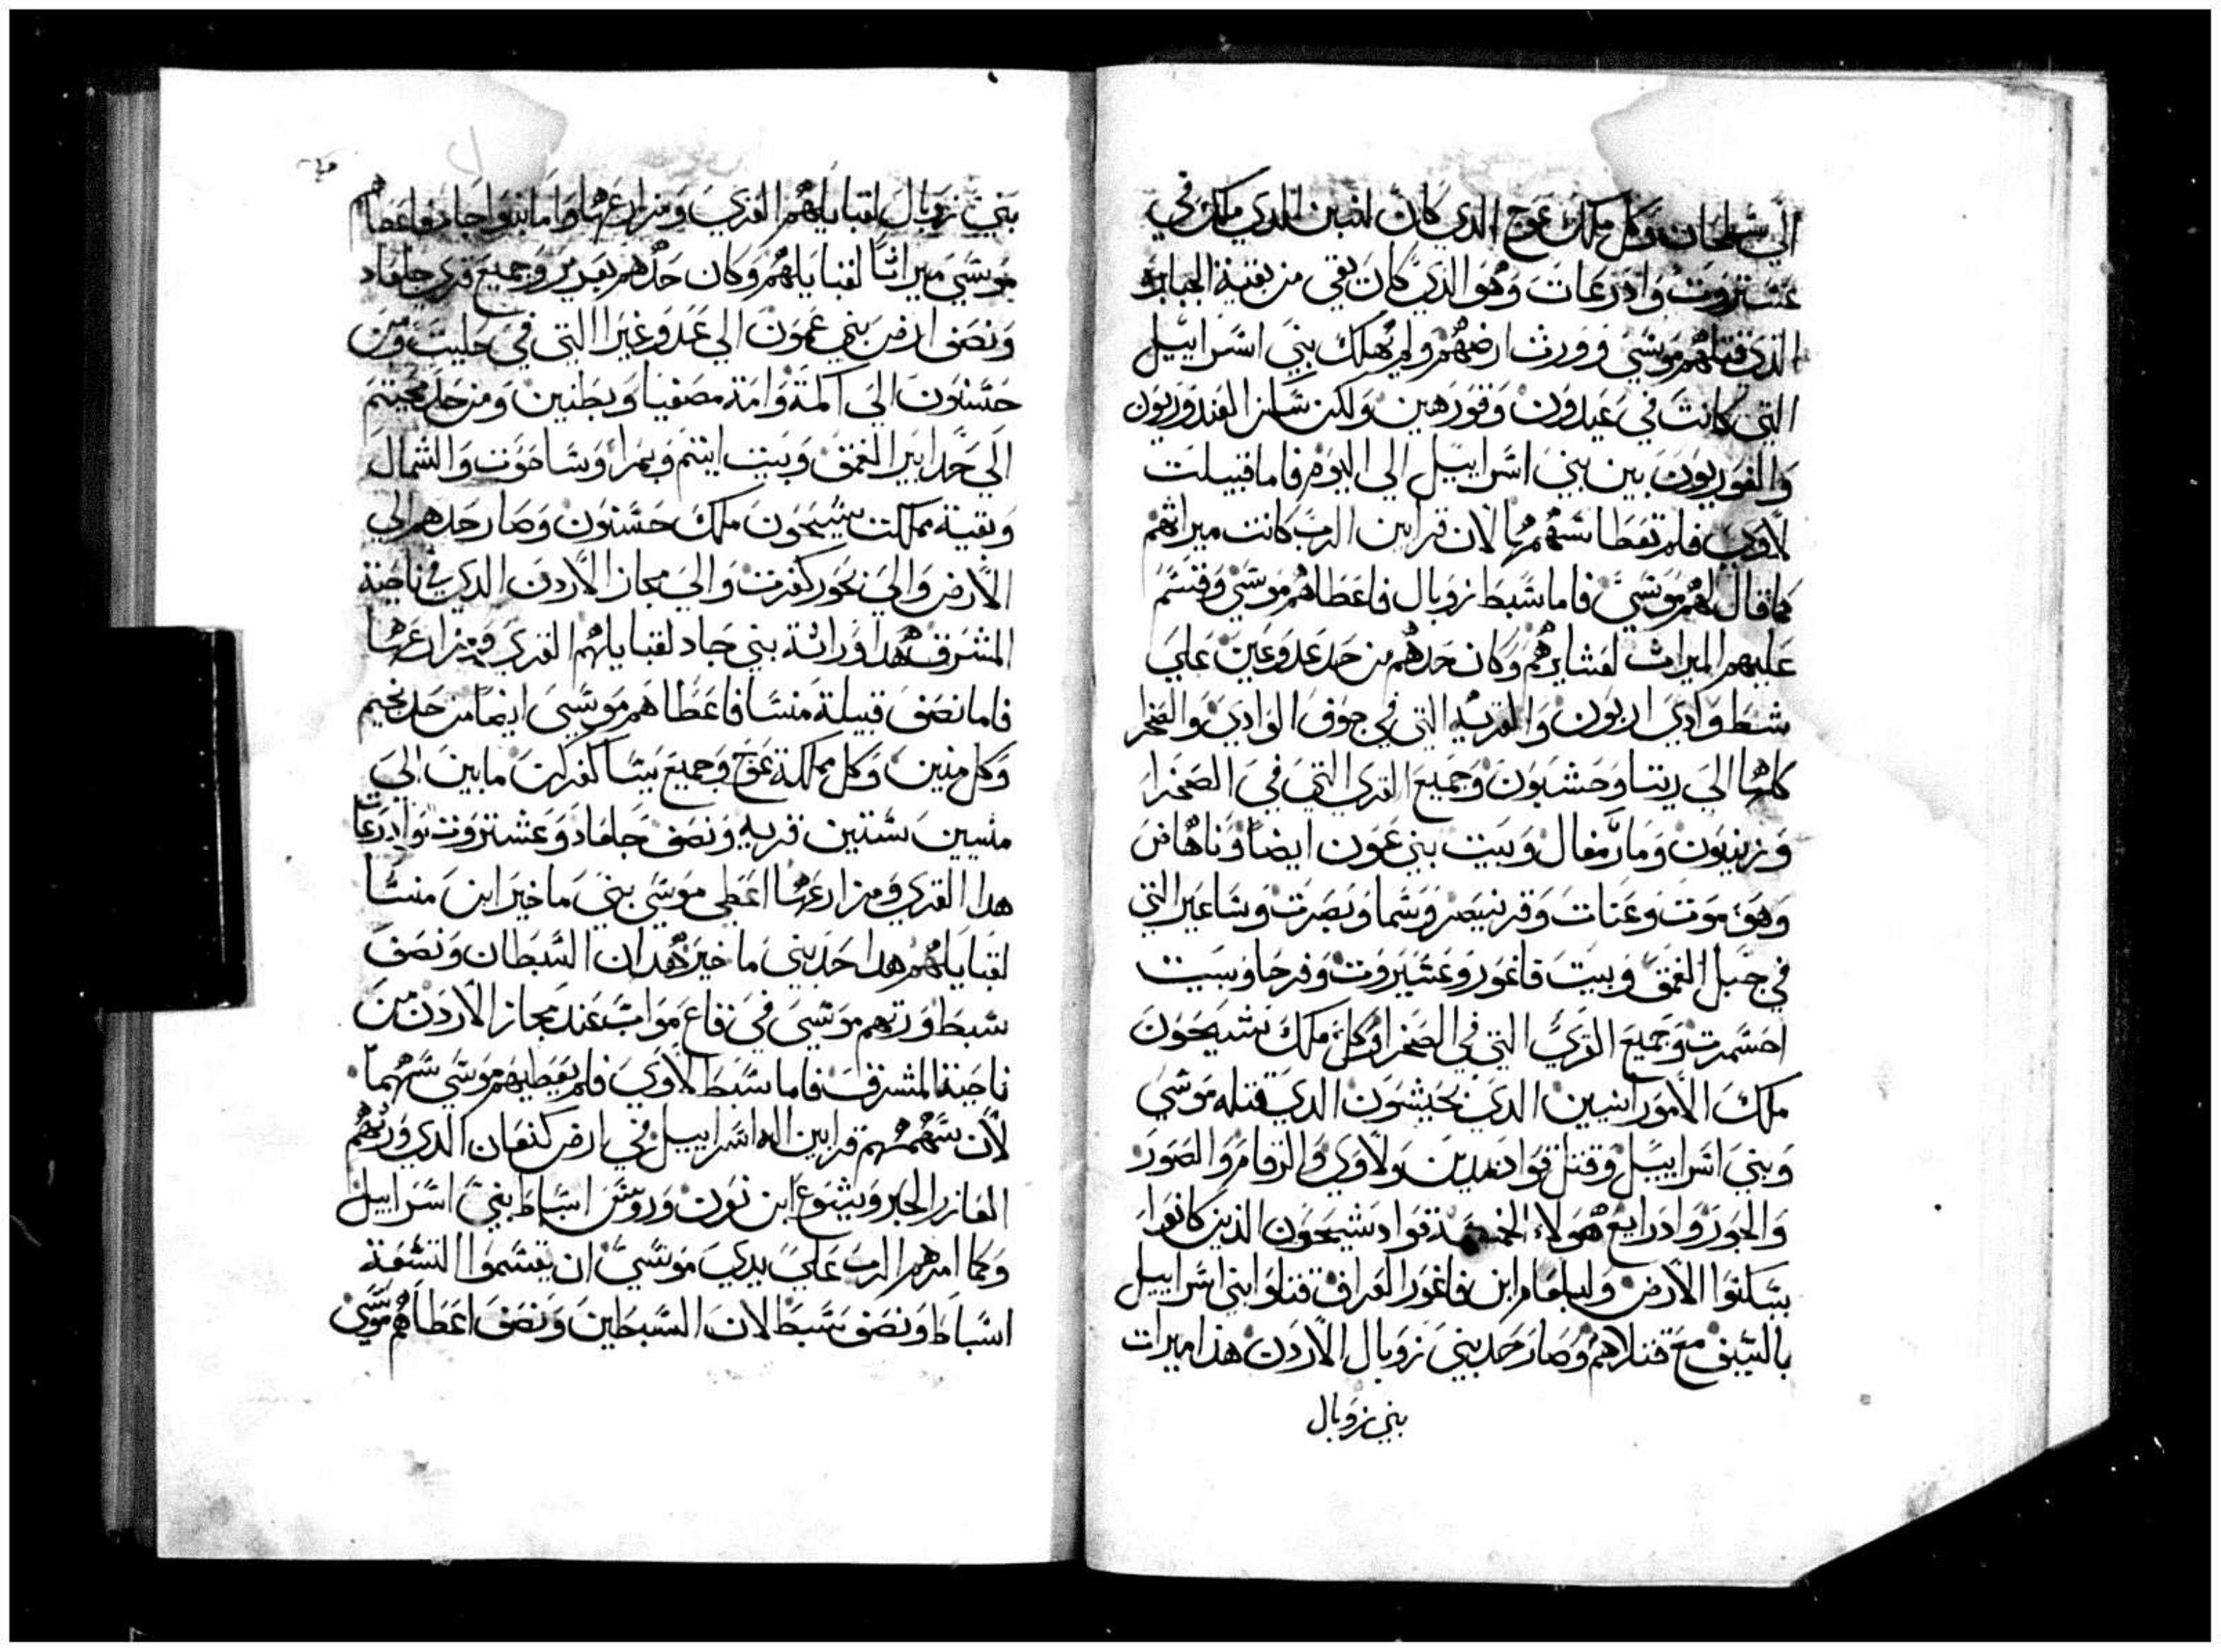 الي سلحان وكل ملك عوج الدي كان لنبين الدي ملك في
عشتروت وادرعات وهو الذي كان بقي من بقية الجبابرة
الذي قتلهم موسي وورث ارضهم ولم يهلك بني اسراييل
التي كانت في عيدون وقورهين ولكن سكنن الفندوريون
والقوريون بين بني اسراييل الي اليوم فاما قبيلت
لاوي فلم تعطا سهمها لان قرابين الرب كانت ميراثهم
كما قال لهم موسي فاما سبط زوبال فاعطاهم موسي وقسم
عليهم الميراث لعشايرهم وكان حدهم من حد عدوعين علي
شط وادي اربون والقريه التي في جوف الوادي والصخرا
كلها الي ريتا وحشبون وجميع القري التي في الصخرا
وزينون ومار مغال وبيت بني عون ايضا وناهاص
وهو موت وعنات وقرنيصر وشما وبصرت وشاعير التي
في جبل الغمق وبيت فاغور وعشيروت وفرحا وبيت
احشمرت وجميع القري التي في الصخرا وكل ملك بشيحون
ملك الامورانيين الدي بحيشون الدي قتله موسي
وبني اسراييل وقتل قواد مدين ولاوي والرقام والصور
والجور وادرابع هولاء الخمسة قواد شيحون الذين كانوا
يسكنوا الارض وبلعام ابن فاغور العراف قتلوا بني اسراييل
بالسيف مع قتلاهم وصار حد بني زوبال الاردن هذا ميرات
بني زوبال
بني زوبال لقبايلهم القري ومزارعها واما بنوا جاد فاعطاهم
موسي ميراثا لقبايلهم وكان حدهم يعرير وجميع قري جلعاد
ونصف ارض بني عمون الي عدوغير التي في حليت ومن
حسنون الي المة وامة مصفيا وبطنين ومن حد محينم
الي حد ابير الغمق وبيت اينم وبمرا وساحوت والشمال
وبقية مملكت سيحون ملك حسنون وصار حدهم الي
الارض والي بحور كفرت والي مجاز الاردن الدي في ناحية
المشرق هدا وراثة بني جاد لقبايلهم القري ومزارعها
فاما نصف قبيلة منسا فاعطاهم موسي ايضا من حد نحيم
وكل منين وكل مملكة عوج وجميع بيتا كفرات ما بين الي
منيين ستين قريه ونصف جلعاد وعشتروت وادرعات
هدا القري ومزارعها اعطي موسي بني ماخير ابن منسا
لقبايلهم هدا حد بني ماخير هدان السبطان ونصف
سبط ورثهم موسي في بقاع مواب عند مجاز الاردن من
ناحية المشرق فاما سبط لاوي فلم يعطيهم موسي سهما
لان سهمهم قرابين اله اسراييل في ارض كنعان الدي ورثهم
العازر الحبر ويشوع ابن نون وروس اسباط بني اسراييل
وكما امرهم الرب علي يدي موسي ان يقسموا التسعة
اسباط ونصف سبط لان السبطين ونصف اعطاهم موسي